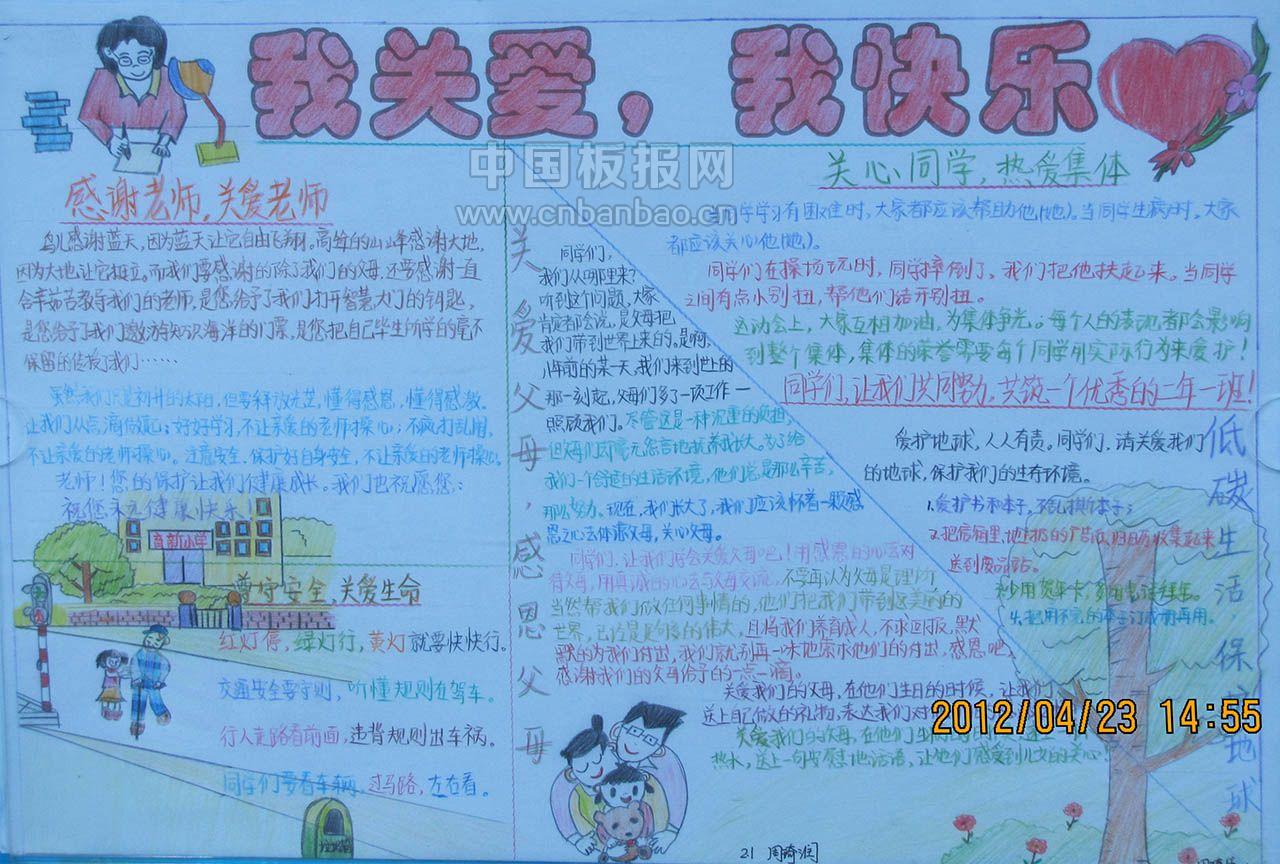 我关爱，我快乐
中国板报网
www.cnbanbao.cn
感谢老师，关爱老师
鸟儿感谢蓝天，因为蓝天让它自由飞翔。高耸的山峰感谢大地，
因为大地让它挺立。而我们要感谢的除了我们的父母，还要感谢一直
含辛茹苦教导我们的老师，是您给予了我们打开智慧大门的钥匙，
是您给予了我们遨游知识海洋的门票，是您把自己毕生所学的毫不
保留的传授了我们……
虽然我们只是初升的太阳，但要释放光芒，懂得感恩，懂得感激。
让我们从点滴做起：好好学习，不让亲爱的老师操心；不疯打乱闹，
不让亲爱的老师操心。注意安全，保护好自身安全，不让亲爱的老师操心。
老师！您的保护让我们健康成长。我们也祝愿您：
祝您永远健康快乐！
育新小学
遵守安全，关爱生命
红灯停，绿灯行，黄灯就要快快行。
交通安全要守则，听懂规则在驾车。
行人走路看前面，违背规则出车祸。
同学们要看车辆，过马路，左右看。
关爱父母，感恩父母
同学们，
我们从哪里来？
听到这个问题，大家
肯定都会说，是父母把
我们带到世界上来的。是啊，
年前的某一天，我们来到世上的
那一刻起，父母们多了一项工作—
照顾我们。尽管这是一种沉重的负担，
但父母们却毫无怨言地抚养我长大。为了给
我们一个舒适的生活环境，他们总是那么辛苦，
那么努力。现在，我们长大了，我们应该怀着一颗感
恩之心去体谅父母，关心父母。
同学们，让我们学会关爱父母吧！用感恩的心去对
待父母，用真诚的心去与父母交流，不要再认为父母是理所
当然帮我们做任何事情的，他们把我们带到这美丽的
世界，已经是足够的伟大，且将我们养育成人，不求回报，默
默的为我们付出，我们就别再一味地索求他们的付出，感恩吧，
感谢我们的父母给予的一点一滴。
关爱我们的父母，在他们生日的时候，让我们
送上自己做的礼物，表达我们对
关爱我们的父母，在他们
热水，送上一句安慰地话语，让他们感受到儿女的关心。
关心同学，热爱集体
当同学学习有困难时，大家都应该帮助他（她）。当同学生病时，大家
都应该关心他（她）。
同学们在操场玩时，同学摔倒了，我们把他扶起来。当同学
之间有点小别扭，帮他们结开别扭。
运动会上，大家互相加油，为集体争光。每个人的表现都会影响
到整个集体，集体的荣誉需要每个同学用实际行为来爱护！
同学们，让我们共同努力，共筑一个优秀的二年一班！
低碳生活，保护地球
爱护地球，人人有责。同学们，请关爱我们
的地球，保护我们的生存环境。
1.爱护书和本子，不乱撕本子；
2.把信箱里，地上扔的广告纸，旧日历收集起来
送到废品站。
3.少用贺年卡，多用电话拜年。
4.把用不完的本子订成册再用。
2012/04/23 14:55
21 周琦润